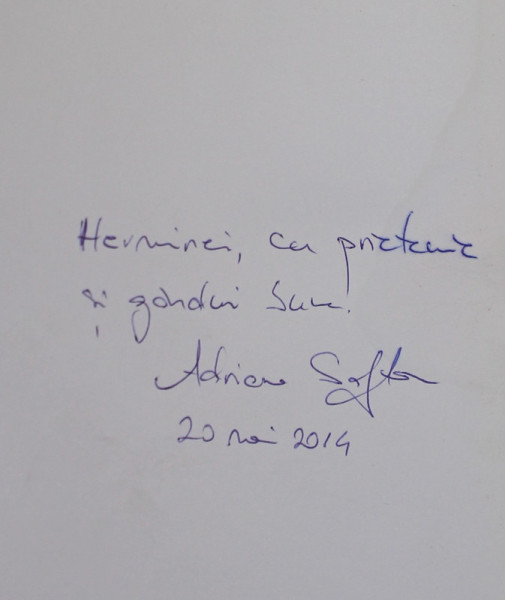 Herminei, cu prietenie
și gânduri bune!
Adriana Săftoiu
20 mai 2014